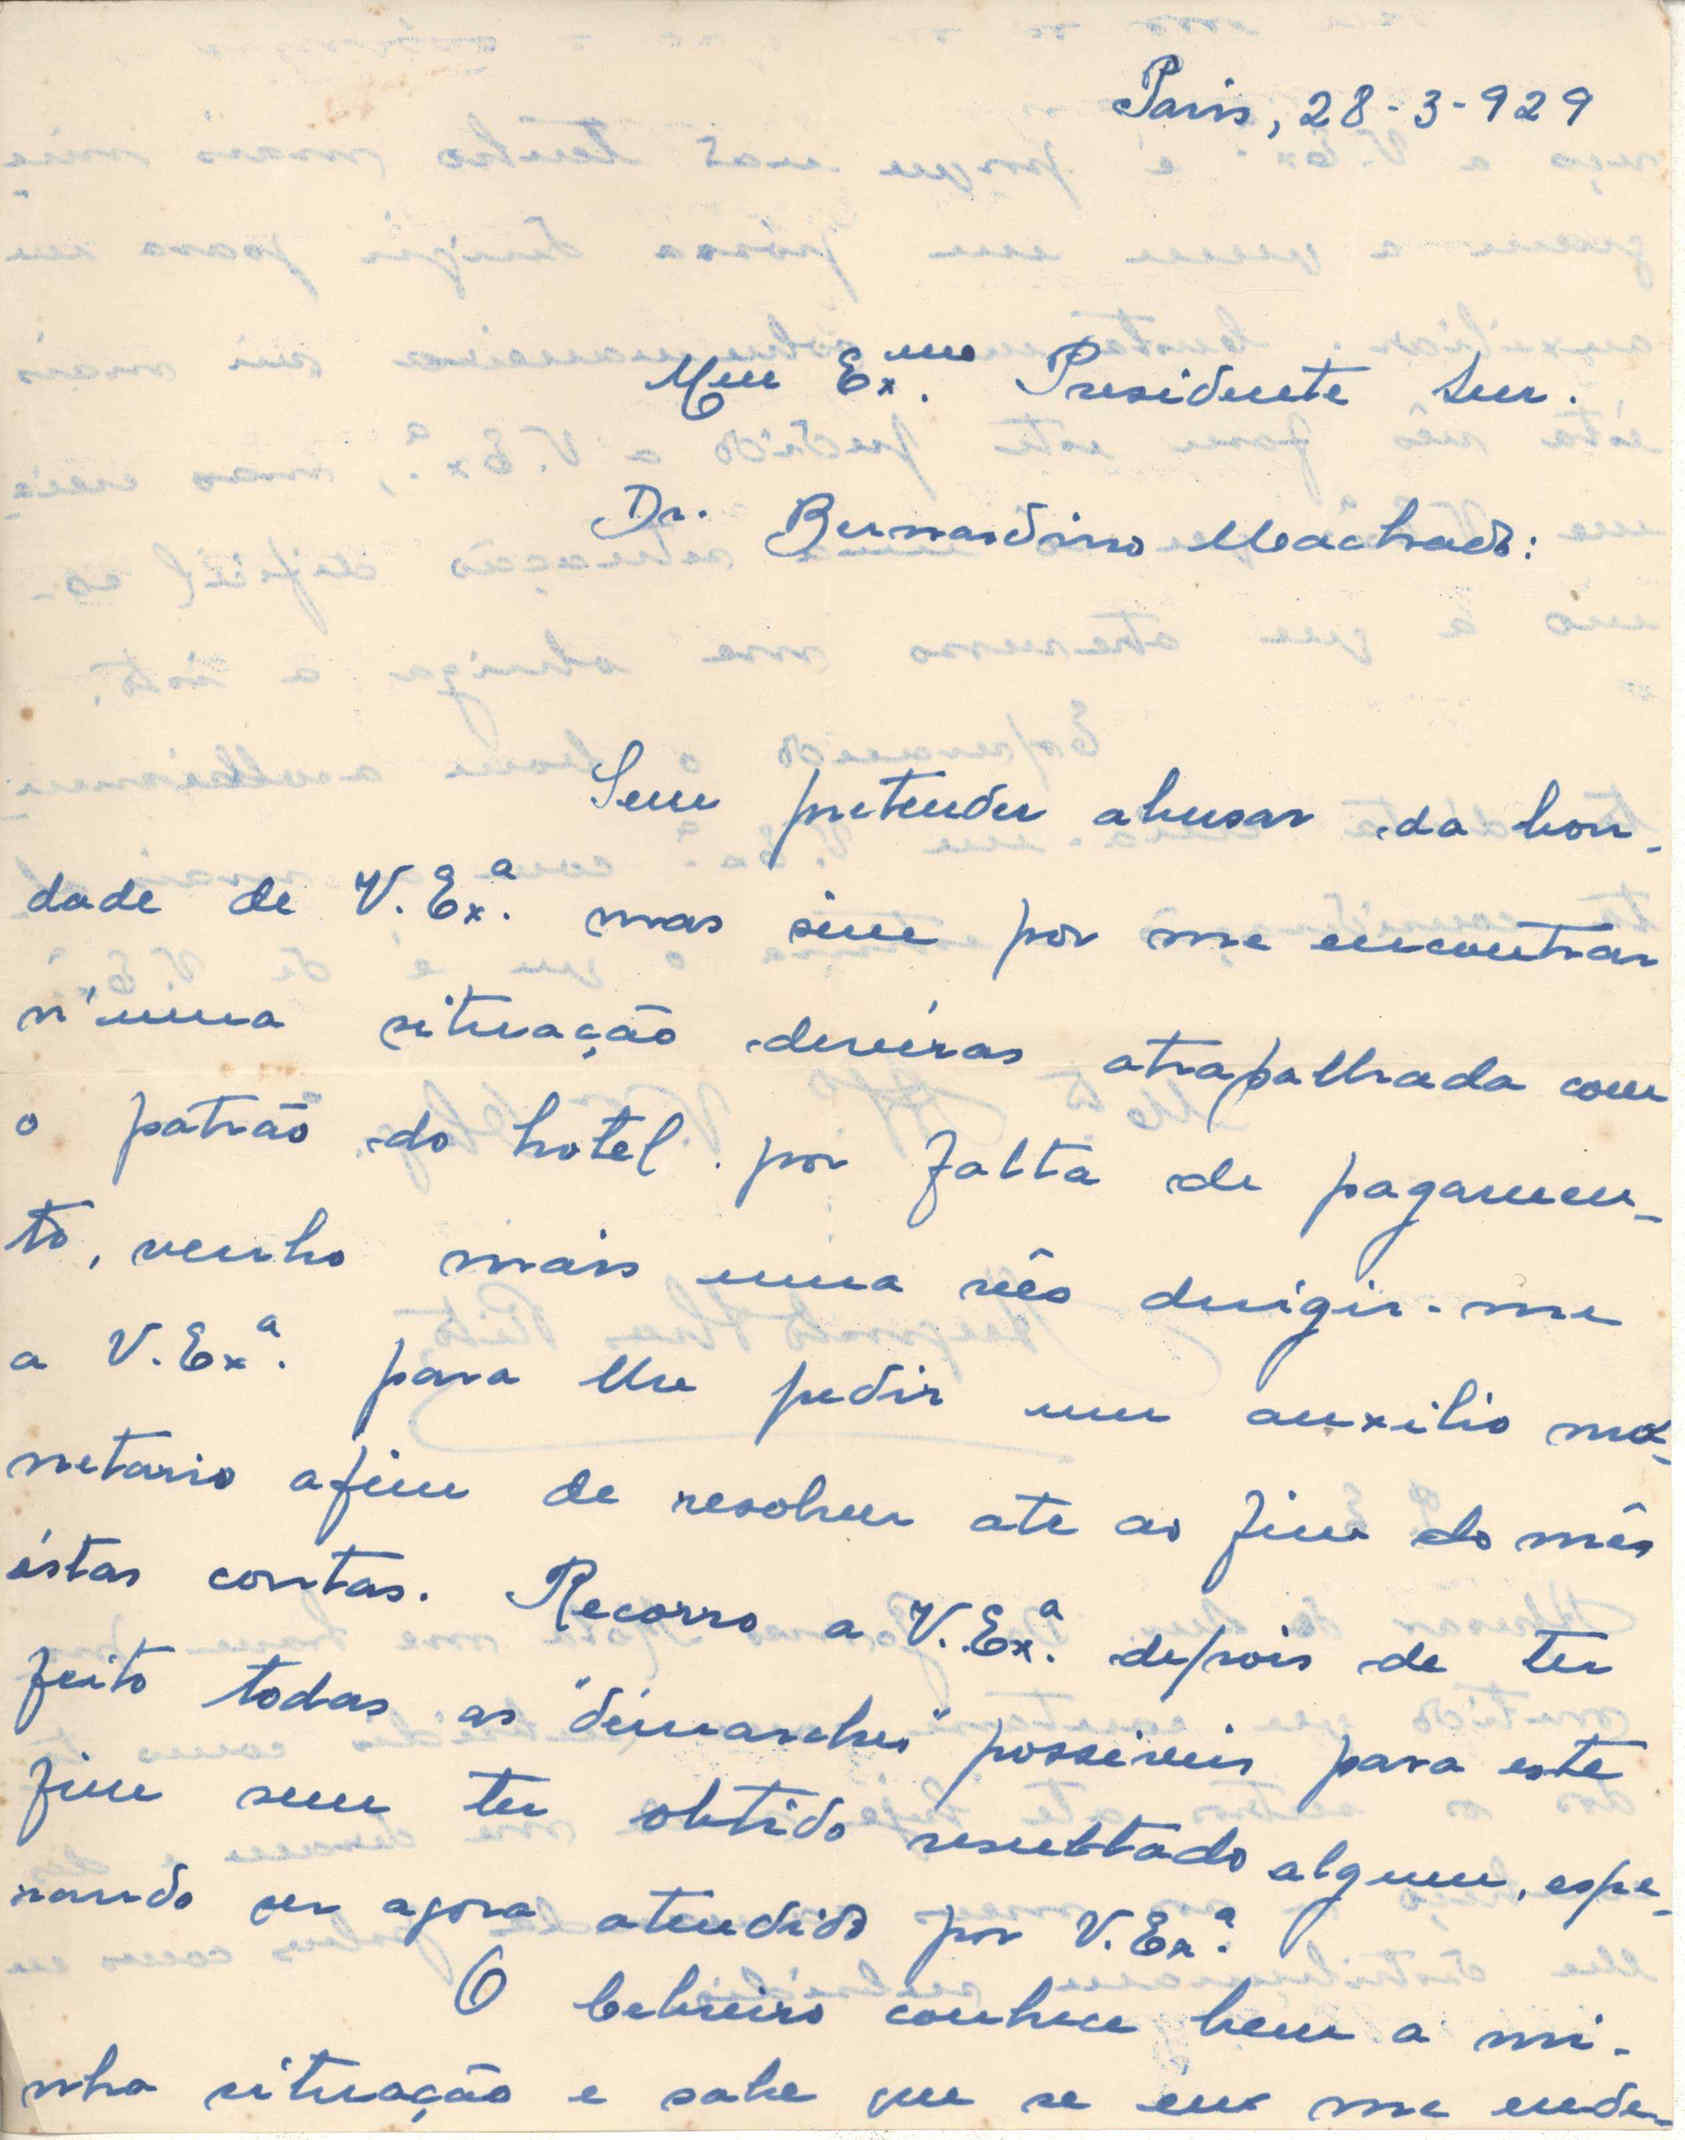 Paris, 28-3-929
Meu Ex.mo Presidente Snr.
Dr. Bernardino Machado:
Sem pretender abusar da bon-
dade de V. Ex.a mas sim por me encontrar
n'uma situação devéras atrapalhada com
o patrão do hotel por falta de pagamen-
to, venho mais uma vês dirigir-me
a V. Ex.a para lhe pedir um auxilio mo-
netario afim de resolver ate ao fim do mês
éstas contas. Recorro a V. Ex.a depois de ter
feito todas as "démarches" possiveis para este
fim sem ter obtido resultado algum, espe-
rando ser agora atendido por V. Ex.a
O conhece bem a mi-
nha situação e sabe que se eu me ende-